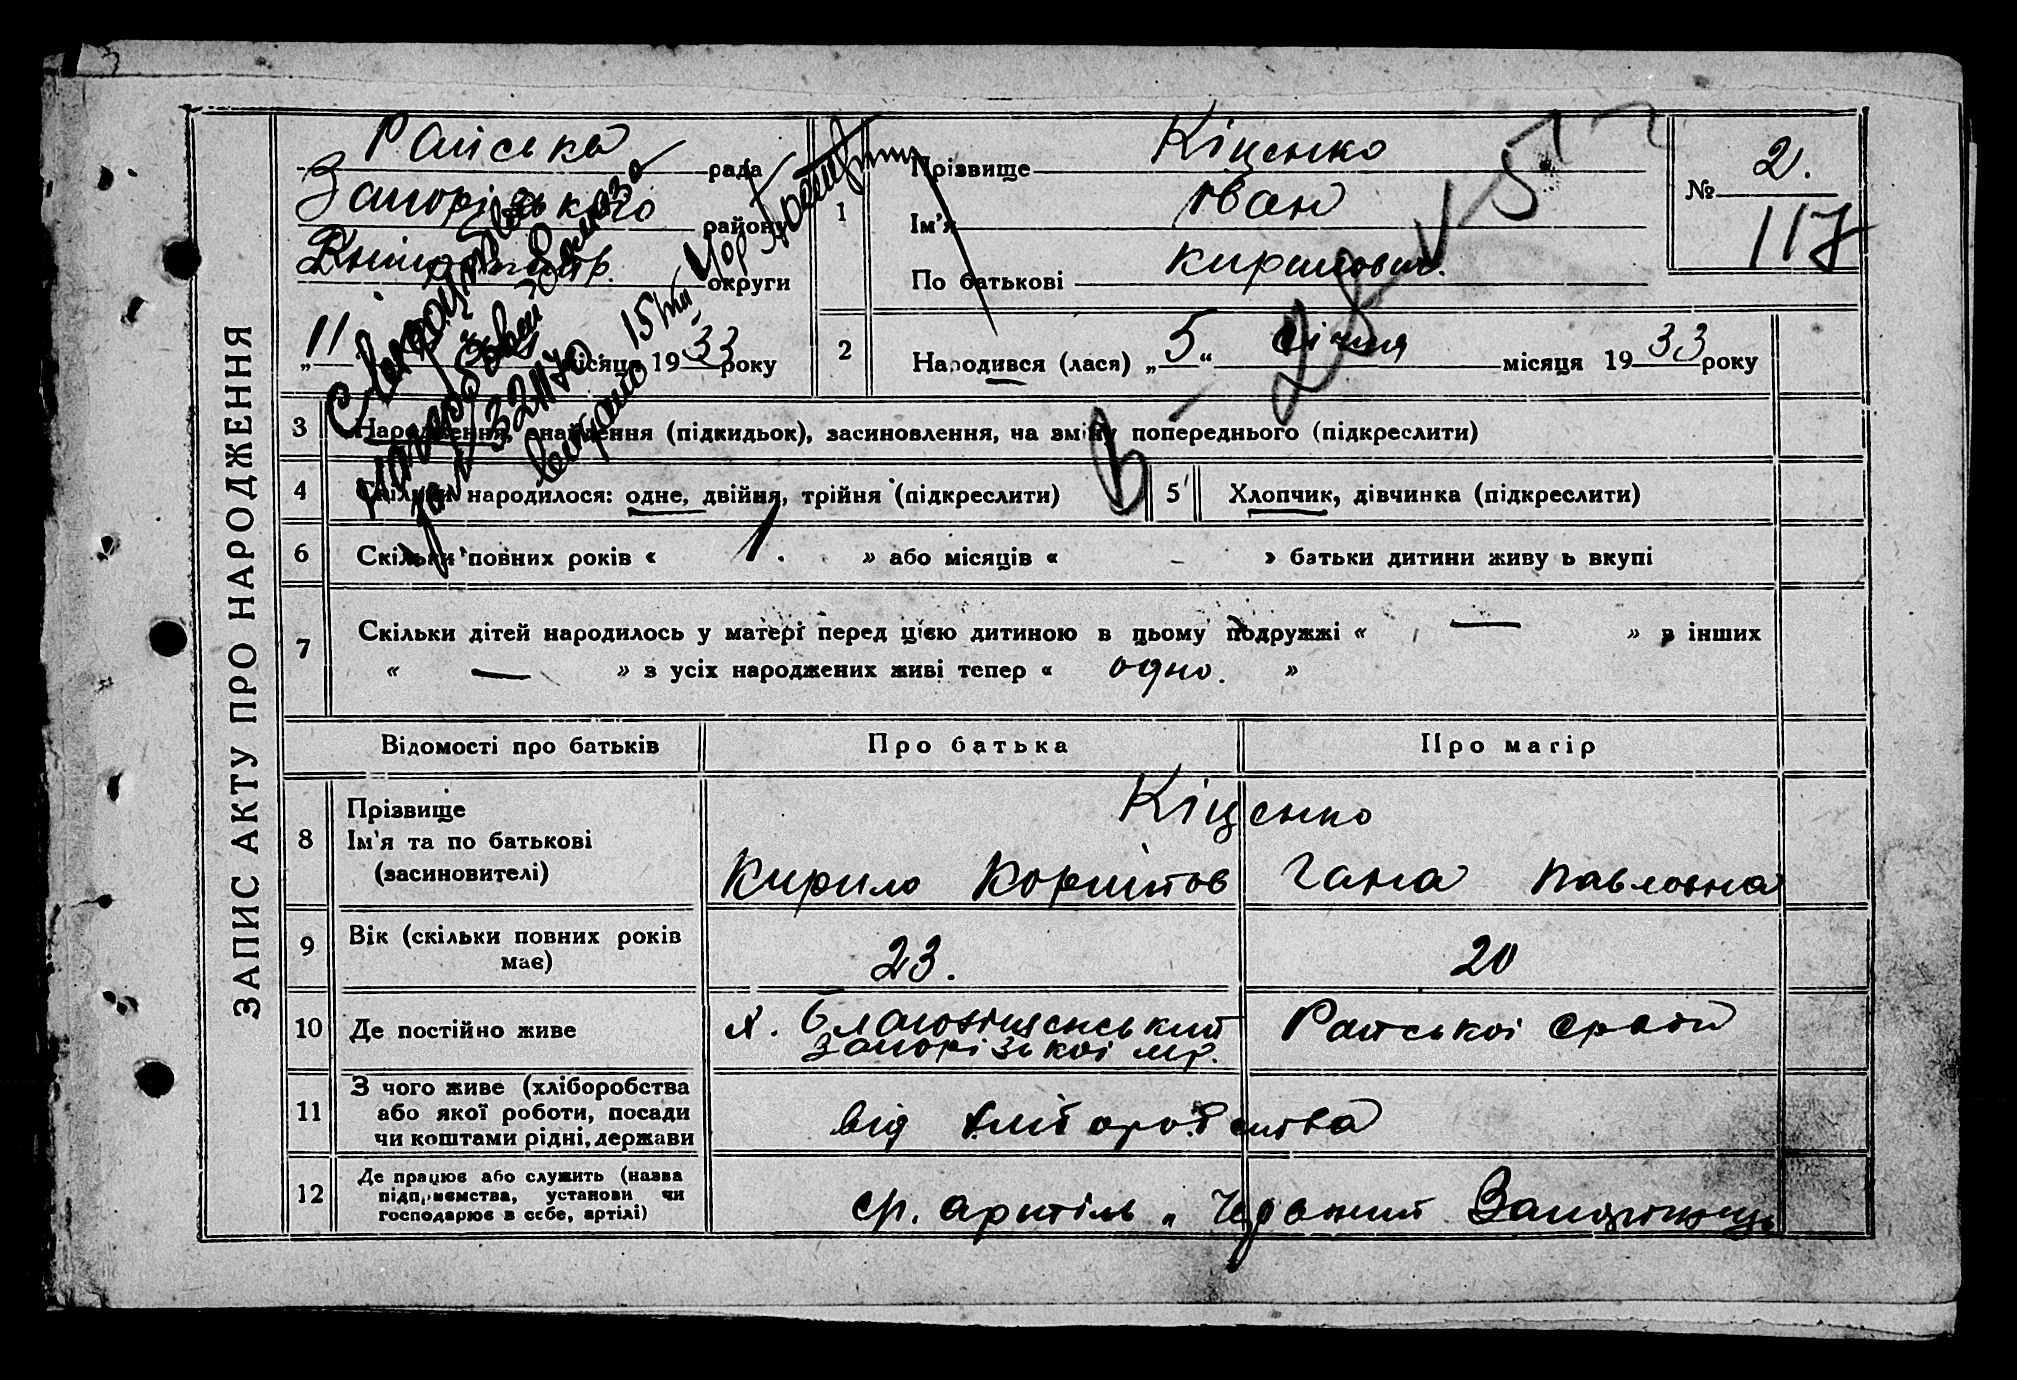 ЗАПИС АКТУ ПРО НАРОДЖЕННЯ
Райська рада
Запорізького району
Дніпропетр. округи
„11 місяця 1933 року
1
Прізвище Кіценко
Ім'я Іван
По батькові Кирилович.
№ 2.
117
2
Народився (лася) „5“ січня місяця 1933 року
3
Народження, знайдення (підкидьок), засиновлення, на зміну попереднього (підкреслити)
4
Скільки народилося: одне, двійня, трійня (підкреслити)
5
Хлопчик, дівчинка (підкреслити)
6
Скільки повних років « 1. » або місяців « - » батьки дитини живуть вкупі
7
Скільки дітей народилось у матері перед цією дитиною в цьому подружжі « — » в інших
« — » з усіх народжених живі тепер « одно. »
Відомості про батьків
Про батька
Про матір
8
Прізвище
Ім'я та по батькові
(засиновителі)
Кіценко
Кирило
Гана Павловна
9
Вік (скільки повних років має)
23.
20
10
Де постійно живе
х. Благовіщенський Райської сради
Запорізької мр.
11
З чого живе (хліборобства
або якої роботи, посади
чи коштами рідні, держави
від хліборобства
12
Де працює або служить (назва
підприємства, установи чи
господарює в себе, артілі)
ср. артіль „Червоний